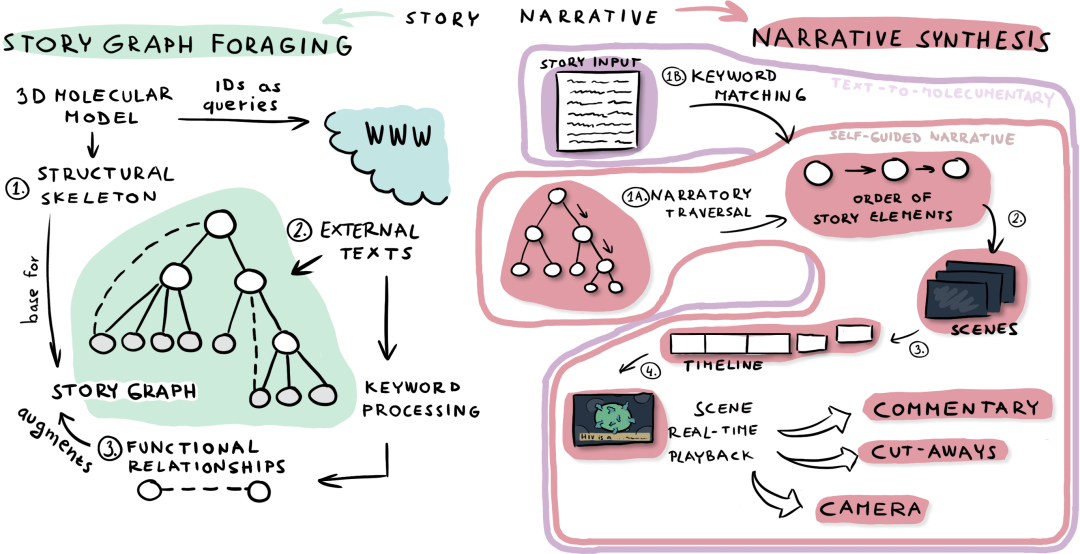 STORY
NARRATIVE
STORY GRAPH FORAGING
3D MOLECULAR
MODEL
IDs as
queries
WWW
1.
STRUCTURAL
SKELETON
2.
EXTERNAL
TEXTS
base for
STORY GRAPH
augments
3.
FUNCTIONAL
RELATIONSHIPS
KEYWORD
PROCESSING
NARRATIVE SYNTHESIS
STORY INPUT
1B
KEYWORD
MATCHING
TEXT-TO-MOLECUMENTARY
SELF-GUIDED NARRATIVE
1A.
NARRATORY
TRAVERSAL
ORDER OF
STORY ELEMENTS
2.
SCENES
3.
TIMELINE
4.
HIV is a ...
SCENE
REAL-TIME
PLAYBACK
COMMENTARY
CUT-AWAYS
CAMERA